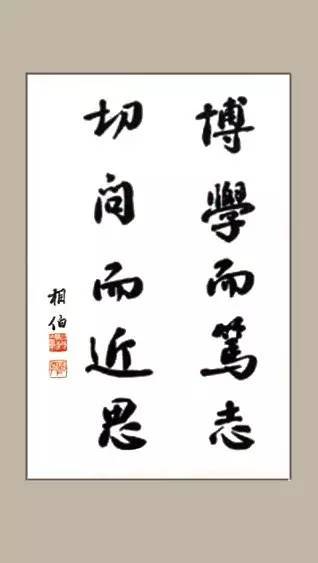 博學而篤志
切問而近思
相伯